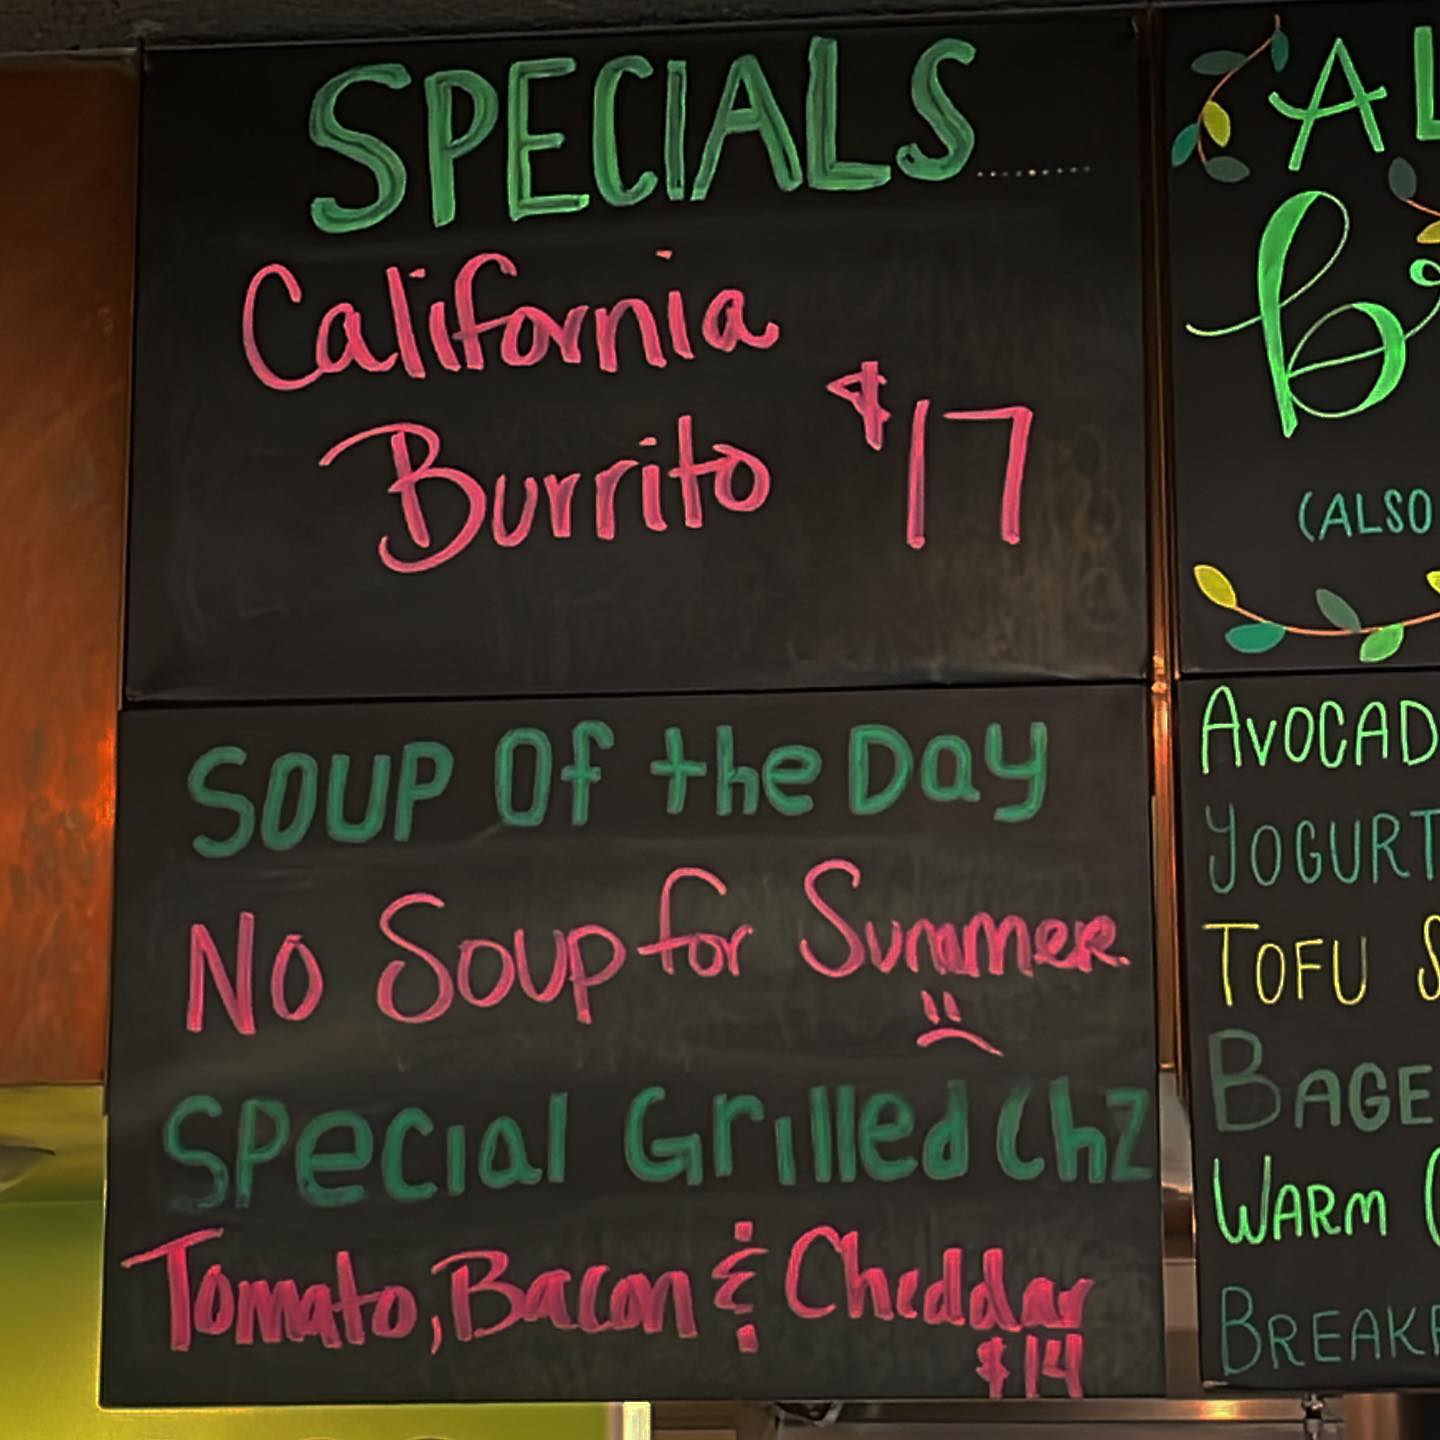 SPECIALS..........
California
Burrito $17
SOUP Of the Day
No Soup for Summer.
Special Grilled Chz
Tomato, Bacon & Cheddar
$14
AL
(ALSO
AVOCAD
YOGURT
TOFU S
BAGE
WARM
BREAKF